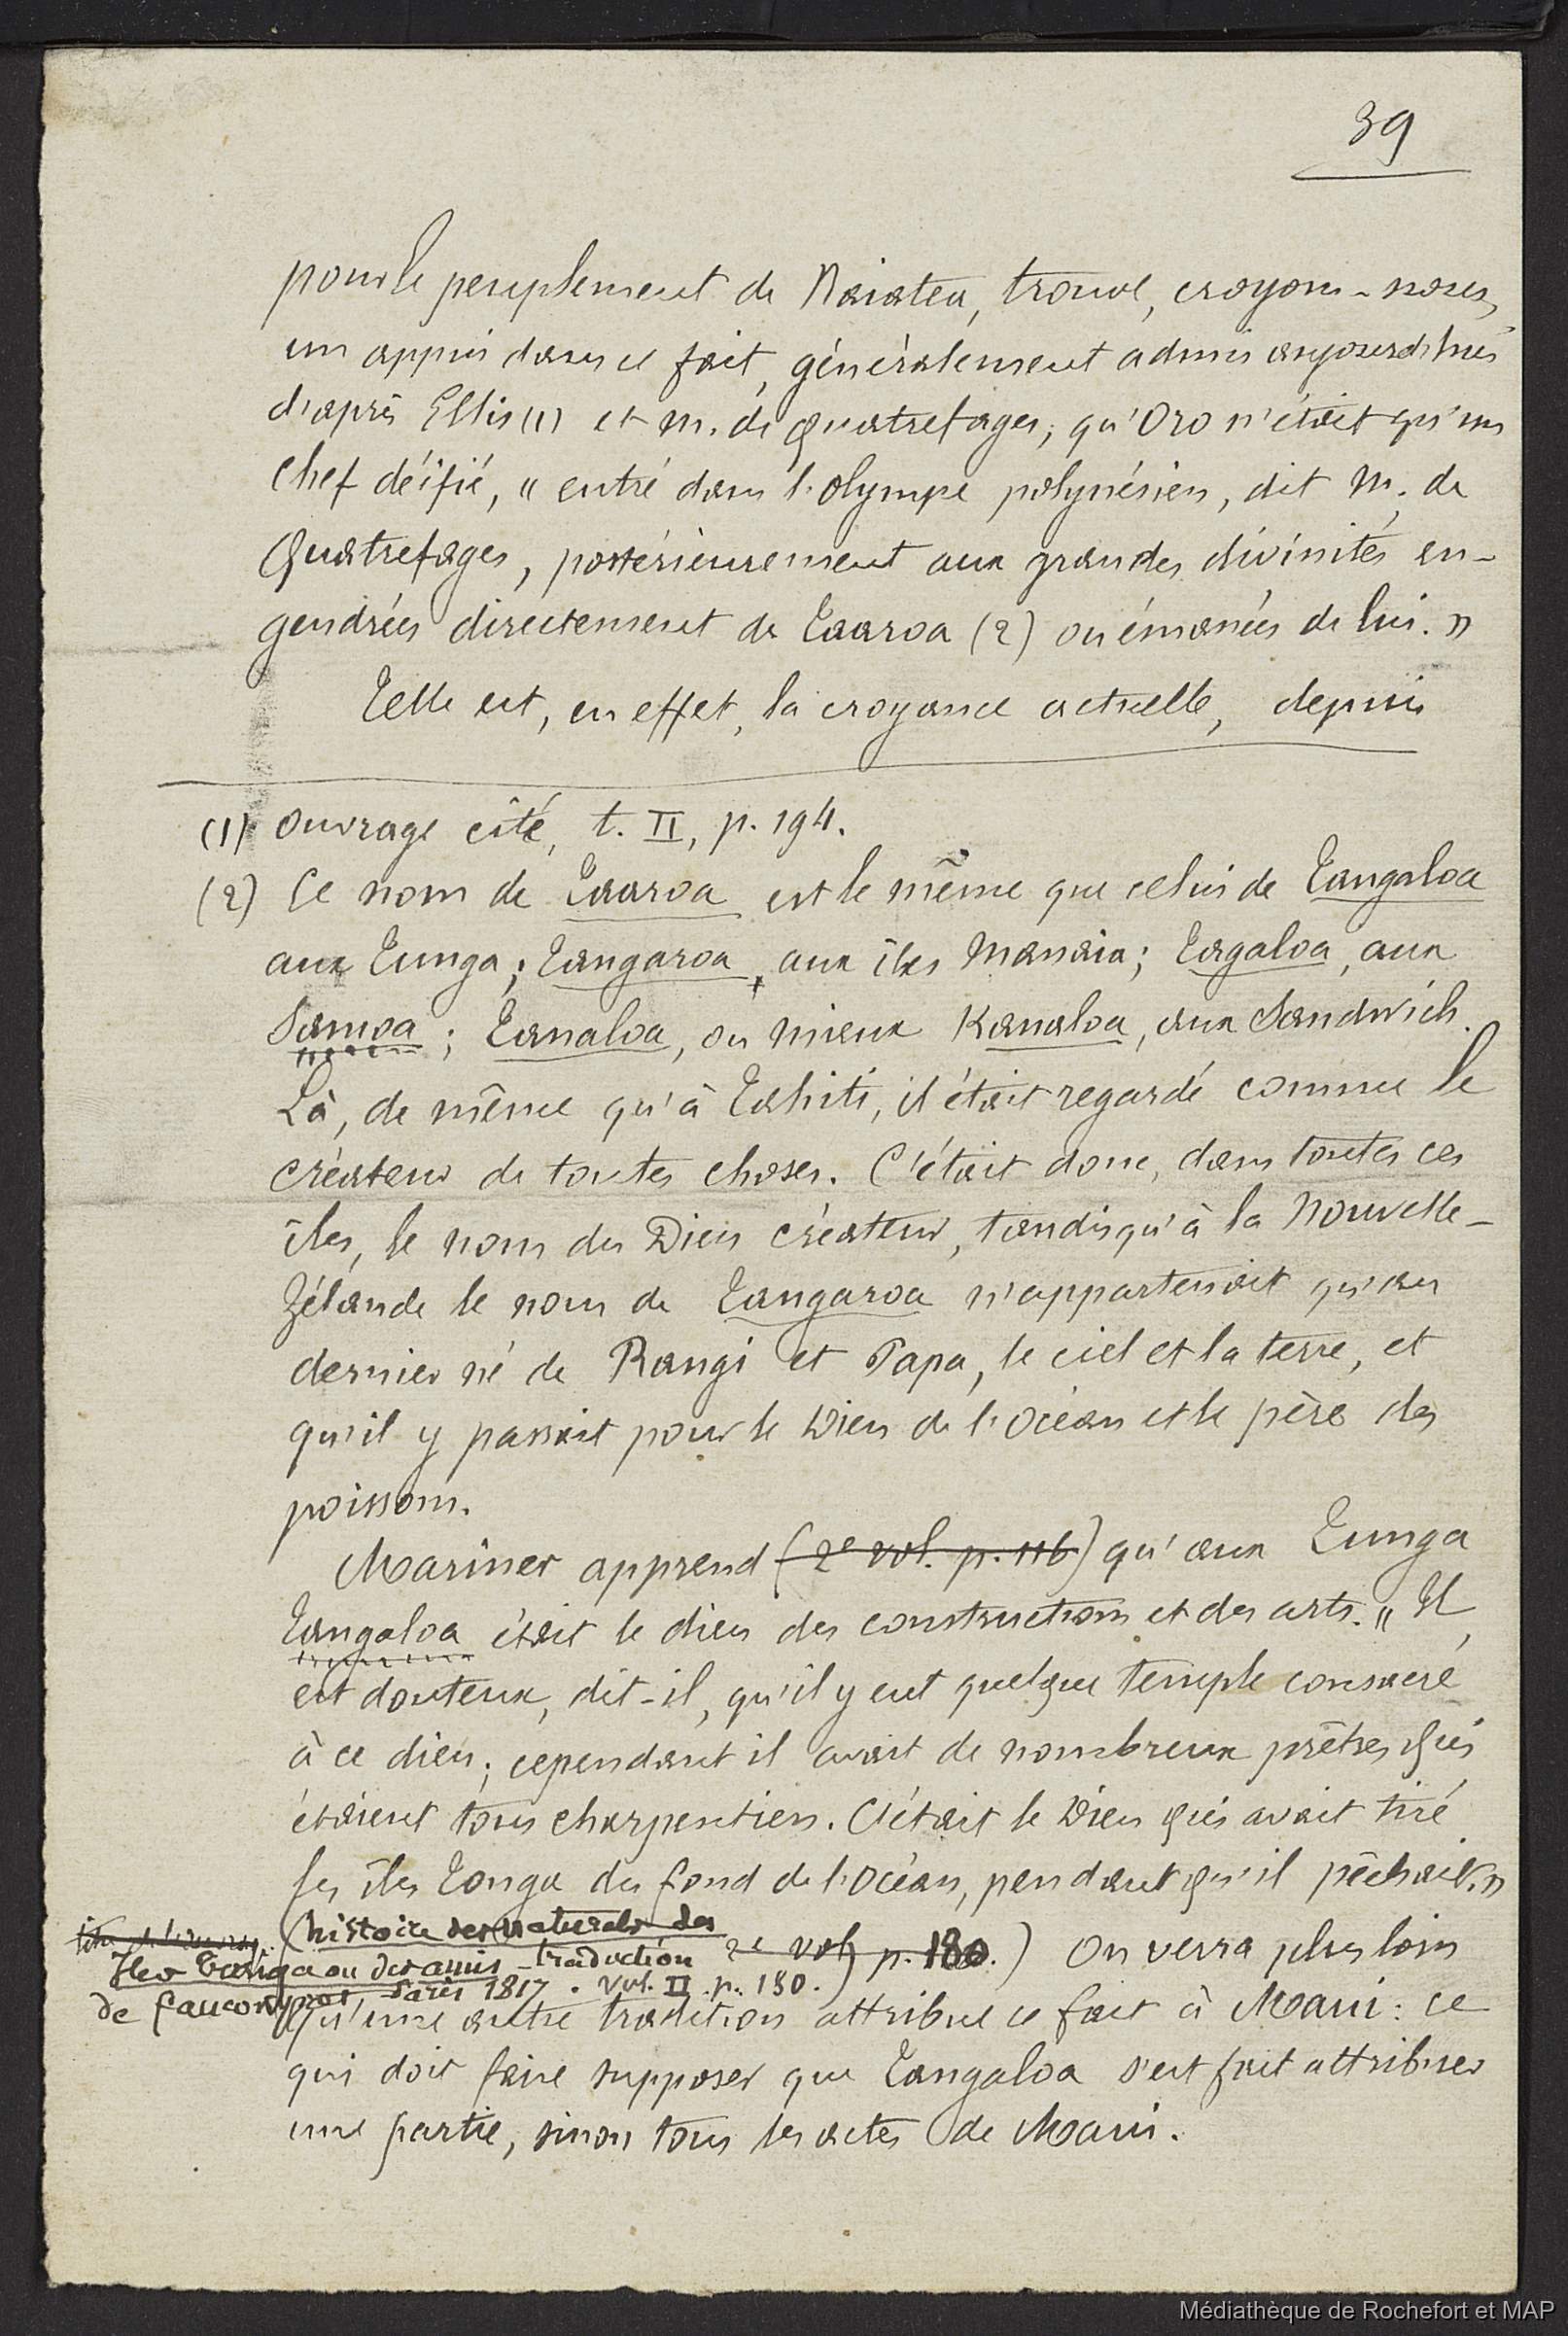 39
pour le peuplement de Raiatea, trouve, croyons-nous,
un appui dans ce fait, généralement admis aujourd'hui
d'après Ellis (1) et M. de Quatrefages, qu'Oro n'était qu'un
chef déifié, « entré dans l'olympe polynésien, dit M. de
Quatrefages, postérieurement aux grandes divinités en-
gendrées directement de Taaroa (2) ou émanées de lui. »
Telle est, en effet, la croyance actuelle, depuis
(1) Ouvrage cité, t. II, p. 194.
(2) Ce nom de Taaroa est le même que celui de Tangaloa
aux Tunga ; Tangaroa, aux îles Manaia ; Tagaloa, aux
Samoa ; Tanaloa, ou mieux Kanaloa, aux Sandwich.
Là, de même qu'à Tahiti, il était regardé comme le
créateur de toutes choses. C'était donc, dans toutes ces
îles, le nom du Dieu créateur, tandis qu'à la Nouvelle-
Zélande le nom de Tangaroa n'appartenait qu'au
dernier né de Rangi et Papa, le ciel et la terre, et
qu'il y passait pour le Dieu de l'Océan et le père des
poissons.
Mariner apprend (2e vol. p. 116) qu'aux Tunga
Tangaloa était le dieu des constructions et des arts. « Il
est douteux, dit-il, qu'il y eut quelque temple consacré
à ce dieu ; cependant il avait de nombreux prêtres qui
étaient tous charpentiers. C'était le Dieu qui avait tiré
les îles Tonga du fond de l'Océan, pendant qu'il pêchait. »
(histoire des naturels des
Iles Tonga ou des amis - traduction
de Faucon, Paris 1817. Vol. II. p. 180.)
2e vol p. 180.) On verra plus loin
qu'une autre tradition attribue ce fait à Maui : ce
qui doit faire supposer que Tangaloa s'est fait attribuer
une partie, sinon tous les actes de Maui.
Médiathèque de Rochefort et MAP